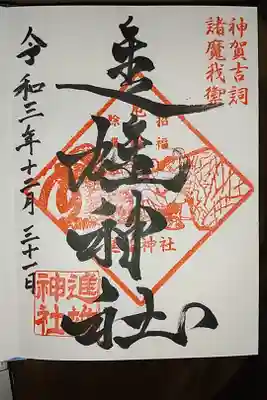 神賀吉詞
諸魔我禦
進雄神社
招福
神社
令和三年十二月三十一日
進雄
神社